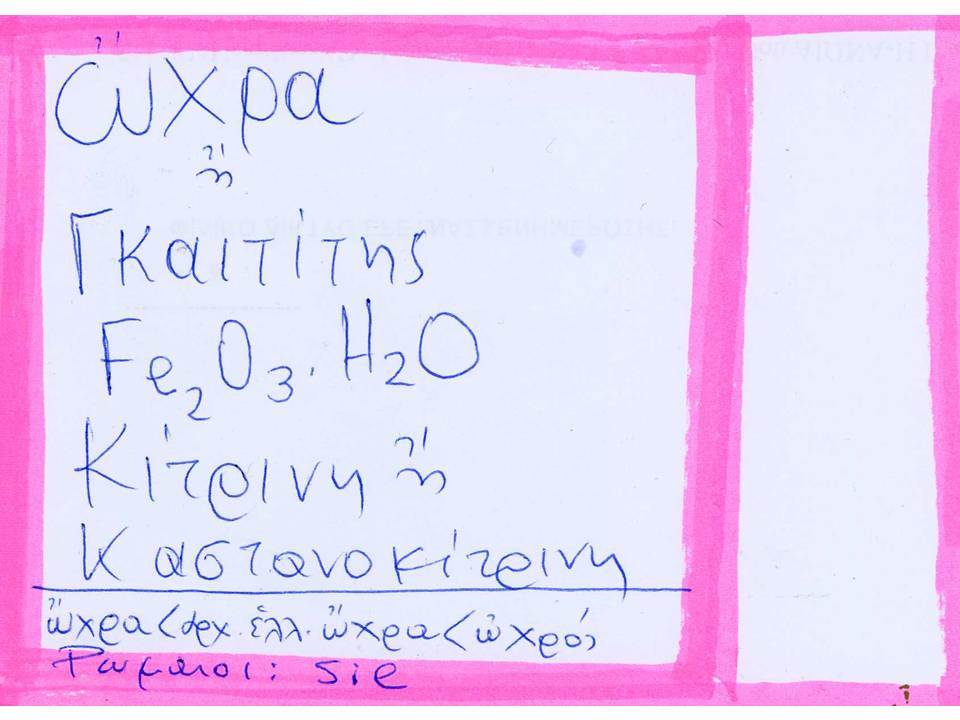 ὤχρα
ἢ
Γκαιτίτης
Fe₂O₃·H₂O
Κίτρινη ἢ
Καστανοκίτρινη
ὤχρα < ἀρχ. ἑλλ. ὤχρα < ὠχρός
Ρωμαῖοι: sil